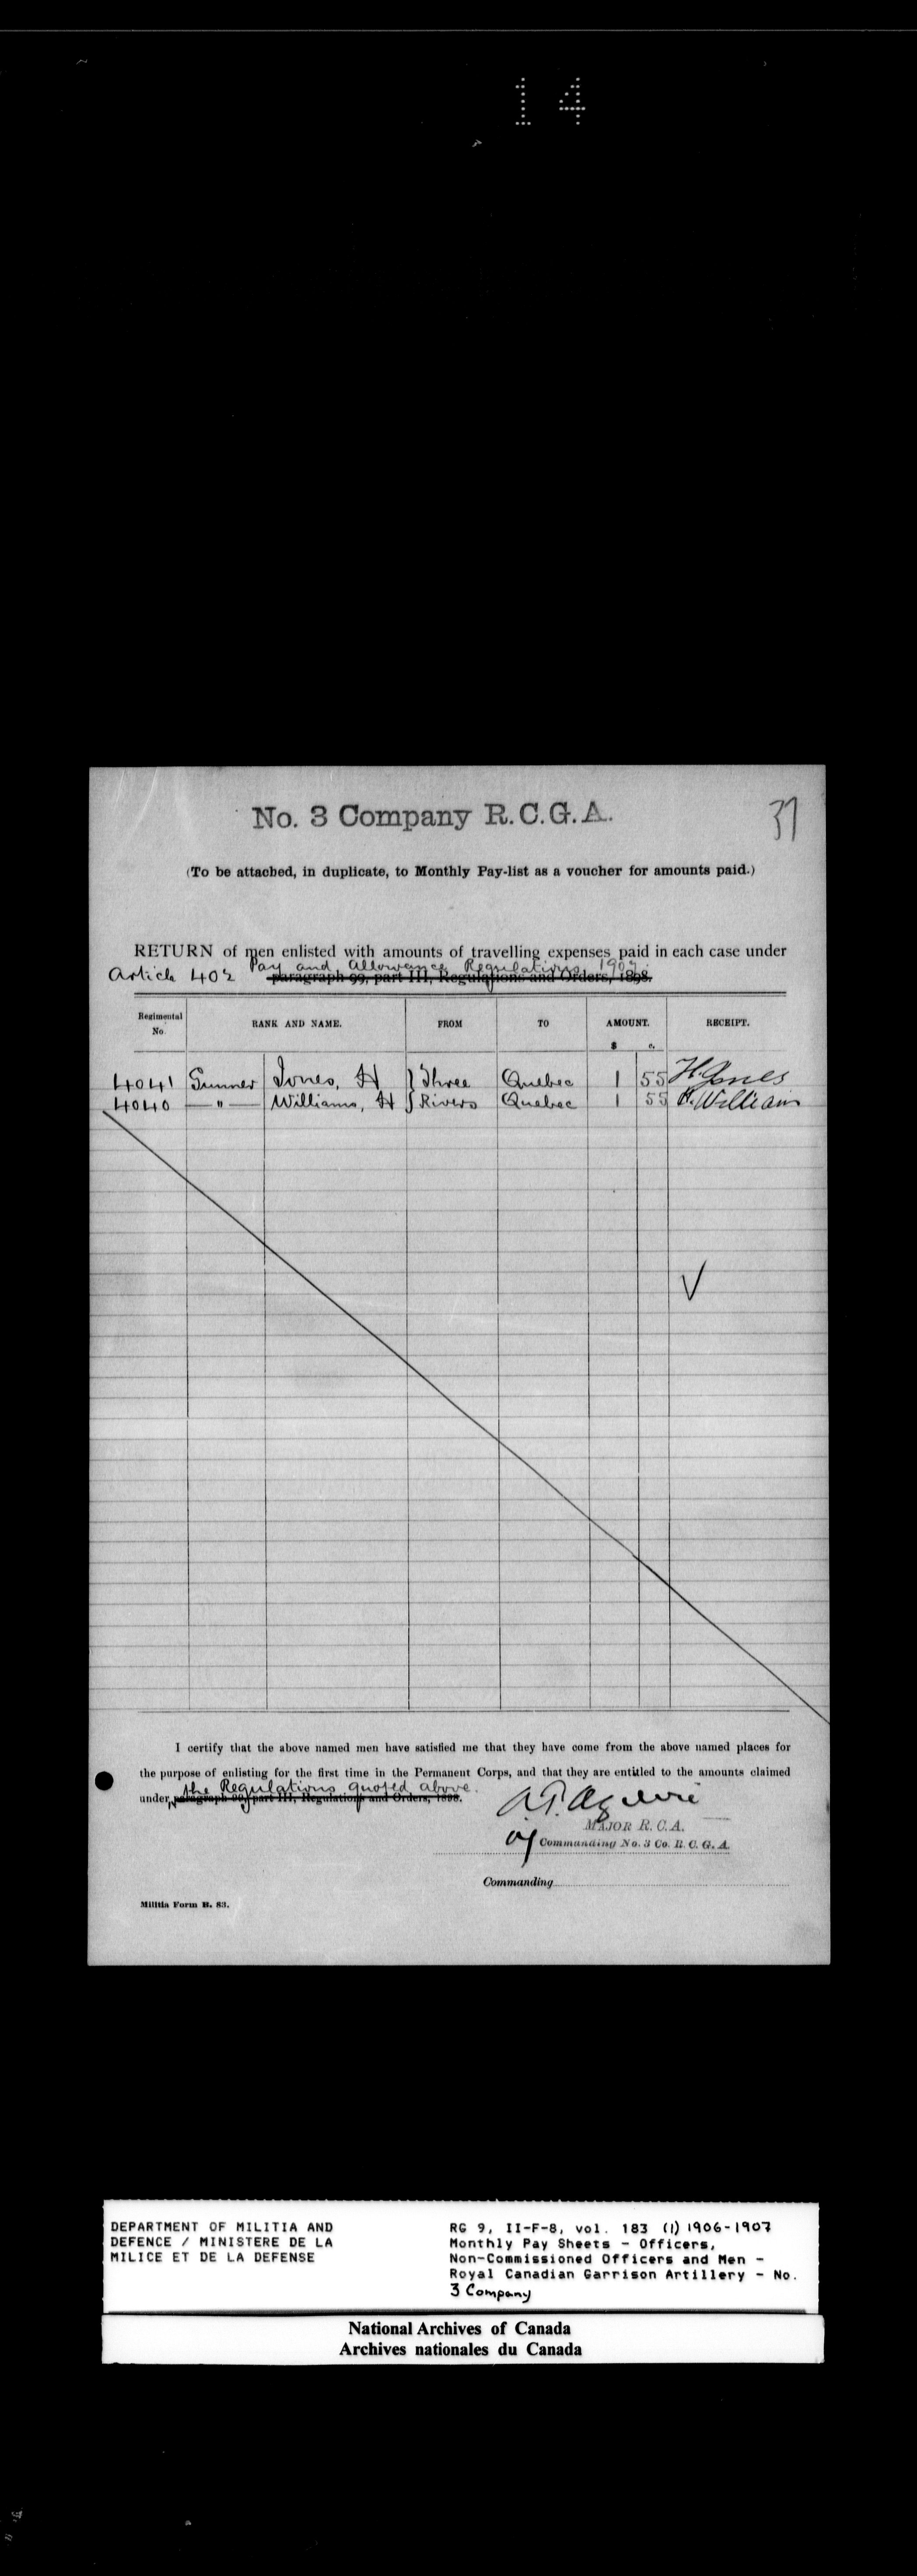 14
No. 3 Company R.C.G.A.
37
(To be attached, in duplicate, to Monthly Pay-list as a voucher for amounts paid.)
RETURN of men enlisted with amounts of travelling expenses paid in each case under
Pay and Allowance Regulations, 190
Article 402 paragraph 99, part III, Regulations and Orders, 1898.
Regimental No. RANK AND NAME. FROM TO AMOUNT. RECEIPT.
$ c.
4041 Gunner Jones, H } Three Quebec 1 55 H. Jones
4040 — " — Williams, H } Rivers Quebec 1 55 H. William
I certify that the above named men have satisfied me that they have come from the above named places for
the purpose of enlisting for the first time in the Permanent Corps, and that they are entitled to the amounts claimed
the Regulations quoted above.
under paragraph 99, part III, Regulations and Orders, 1898.
A.T. Ogilvie
MAJOR R.C.A.
Commanding No. 3 Co. R.C.G.A.
Commanding
Militia Form B. 83.
DEPARTMENT OF MILITIA AND
DEFENCE / MINISTERE DE LA
MILICE ET DE LA DEFENSE
RG 9, II-F-8, vol. 183 (1) 1906-1907
Monthly Pay Sheets - Officers,
Non-Commissioned Officers and Men -
Royal Canadian Garrison Artillery - No.
3 Company
National Archives of Canada
Archives nationales du Canada